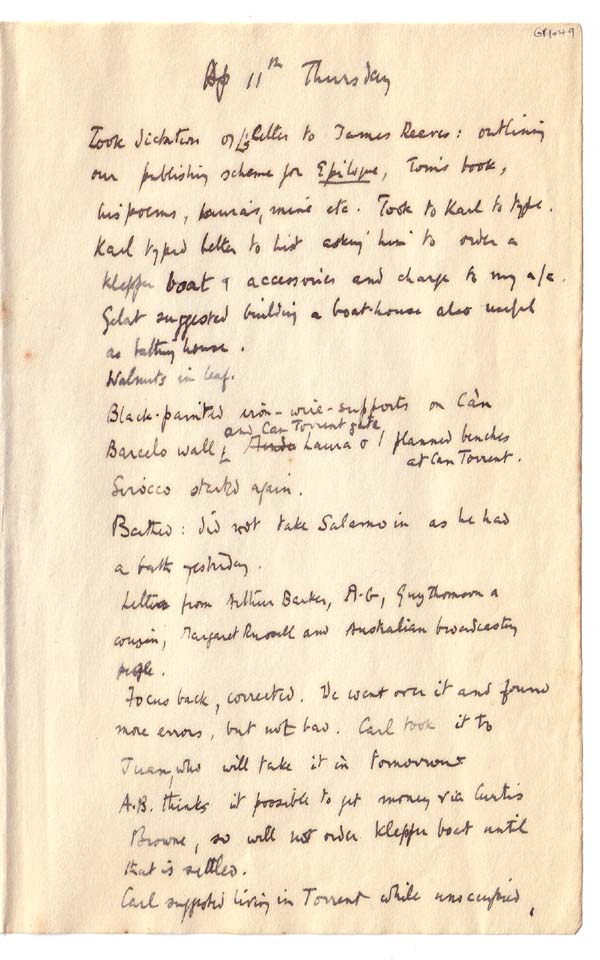 GY1049
Ap 11th Thursday
Took dictation of L's letter to James Reeves: outlining
our publishing scheme for Epilogue, Tom's book,
his poems, Laura's, mine etc. Took to Karl to type.
Karl typed letter to asking him to order a
Klepper boat & accessories and charge to my a/c.
Gelat suggested building a boat-house also useful
as bathing house.
Walnuts in leaf.
Black-painted iron-wire-supports on Ca'n
Barcelo wall and Can Torrent gate. Laura & I planned benches
at Can Torrent.
Sirocco started again.
Bathed: did not take Salamo in as he had
a bath yesterday.
Letters from Arthur Barker, A-G, Guy Thomson a
cousin, Margaret Russell and Australian broadcasting
people.
Focus back, corrected. We went over it and found
more errors, but not bad. Carl took it to
Juan, who will take it in tomorrow.
A.B. thinks it possible to get money via Curtis
Browne, so will not order Klepper boat until
that is settled.
Carl suggested living in Torrent while unoccupied,